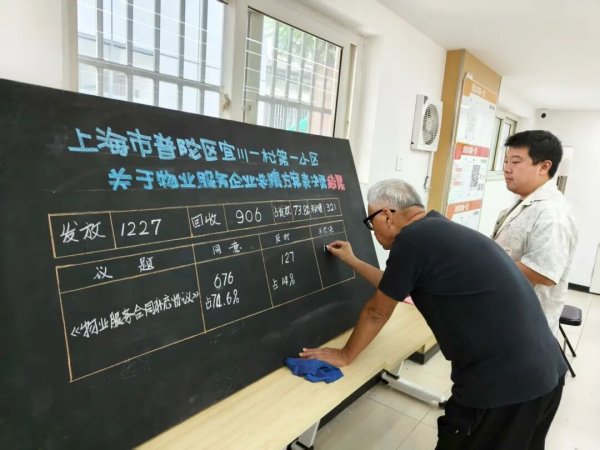 上海市普陀区宜川一村第一小区
关于物业服务企业 方案表决 结果
发放 1227 回收 906 占发放 73.8% 321
议题 同意 反对
《物业服务合同补充协议》 676 127
占74.6% 占14%